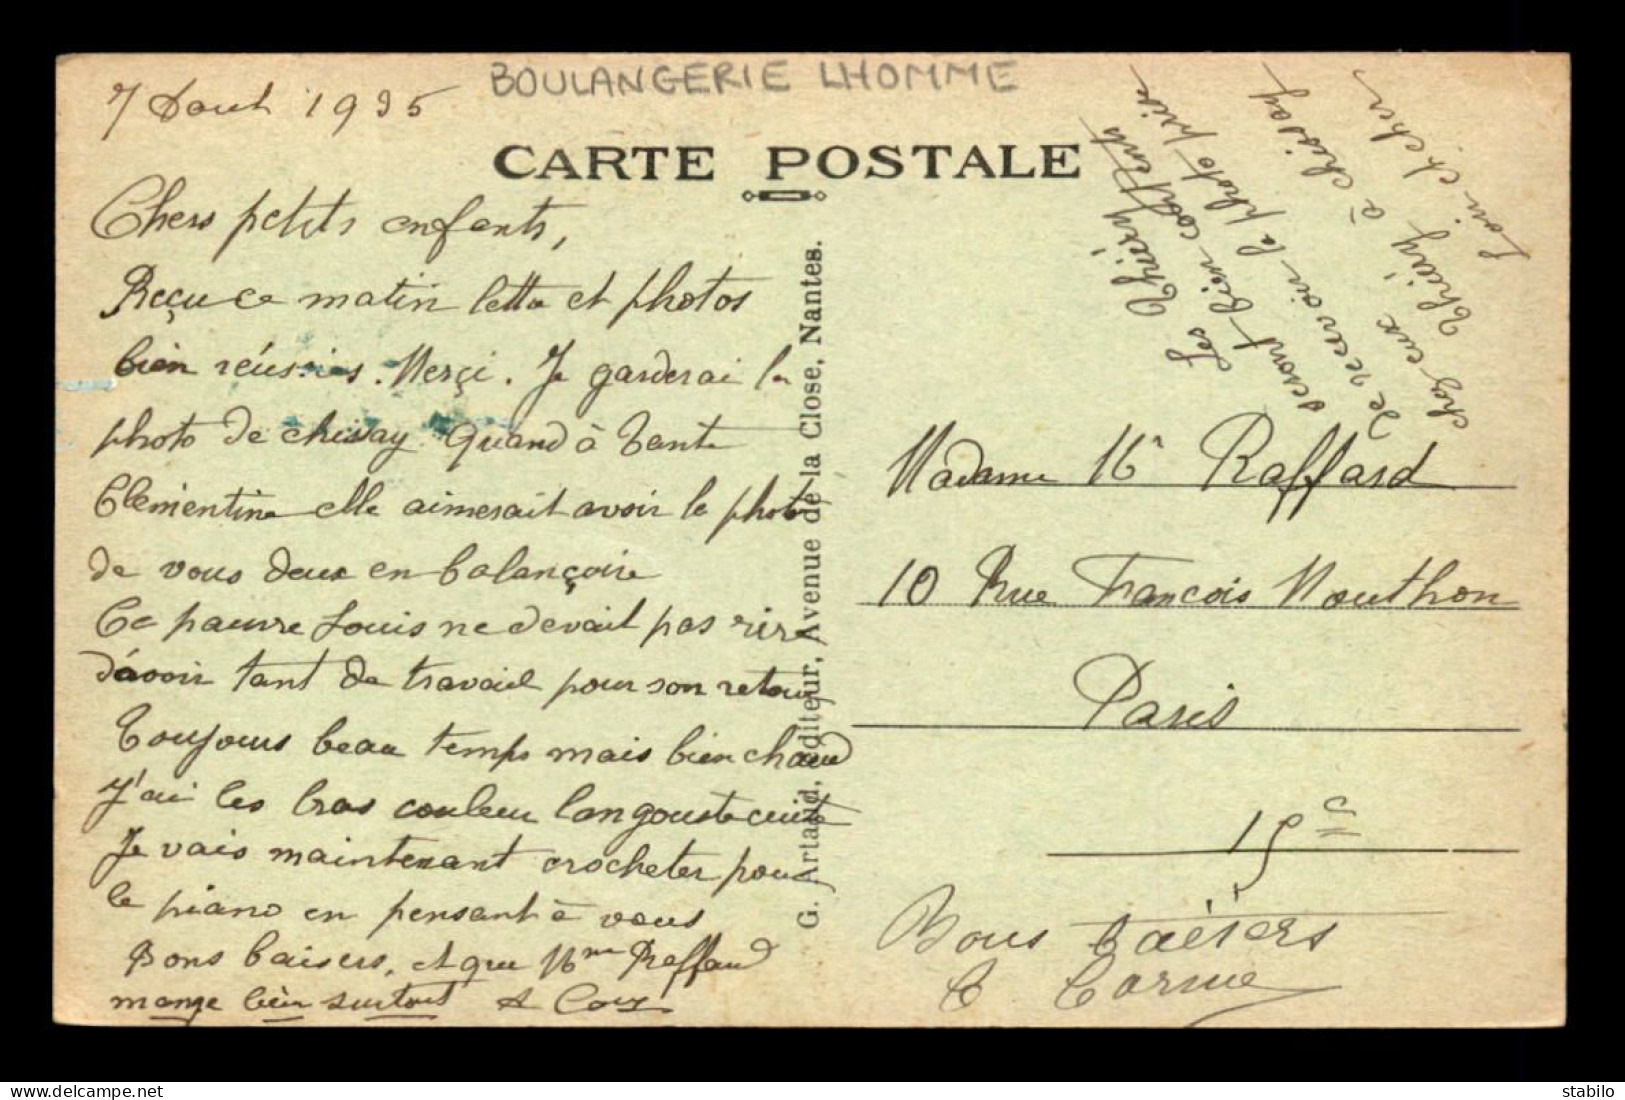 BOULANGERIE LHOMME
7 Aout 1935
CARTE POSTALE
Chers petits enfants,
Reçu ce matin lettre et photos
bien réussies. Merçi. Je garderai la
photo de chissay. Quand à Tante
Clementine elle aimerait avoir la photo
de vous deux en balançoire
Ce pauvre Louis ne devait pas rire
d'avoir tant de travail pour son retour
Toujours beau temps mais bien chaud
J'ai les bras couleur langouste cuite
Je vais maintenant crocheter pour
le piano en pensant à vous
Bons baisers, et que Mme Raffard
mange bien surtout
G. Artaud, éditeur, Avenue de la Close, Nantes.
Les Thiéry
seront bien contents
de recevoir la photo prise
chez eux à chissay
Thiéry
Loir et cher
Madame Raffard
10 Rue Francois Mouthon
Paris
15 c
Bons baisers
stabilo